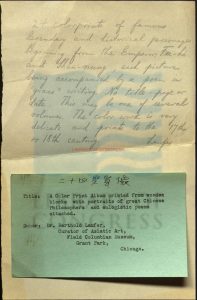 24 Color prints of famous
Emendary and historical personages
Beginning from the Emperor Fu-shi
and Nü-     and picture
being accompanied by a poem in
grass-writing. No title page or
date. This may be one of several
volumes. The color work is very
delicate and points to the 17th
or 18th century.
二十四
Title: A Color Print Album printed from wooden
blocks with portraits of great Chinese
Philosophers and eulogistic poems
attached.
Donor: Dr. Berthold Laufer,
Curator of Asiatic Art,
Field Columbian Museum,
Grant Park,
Chicago.